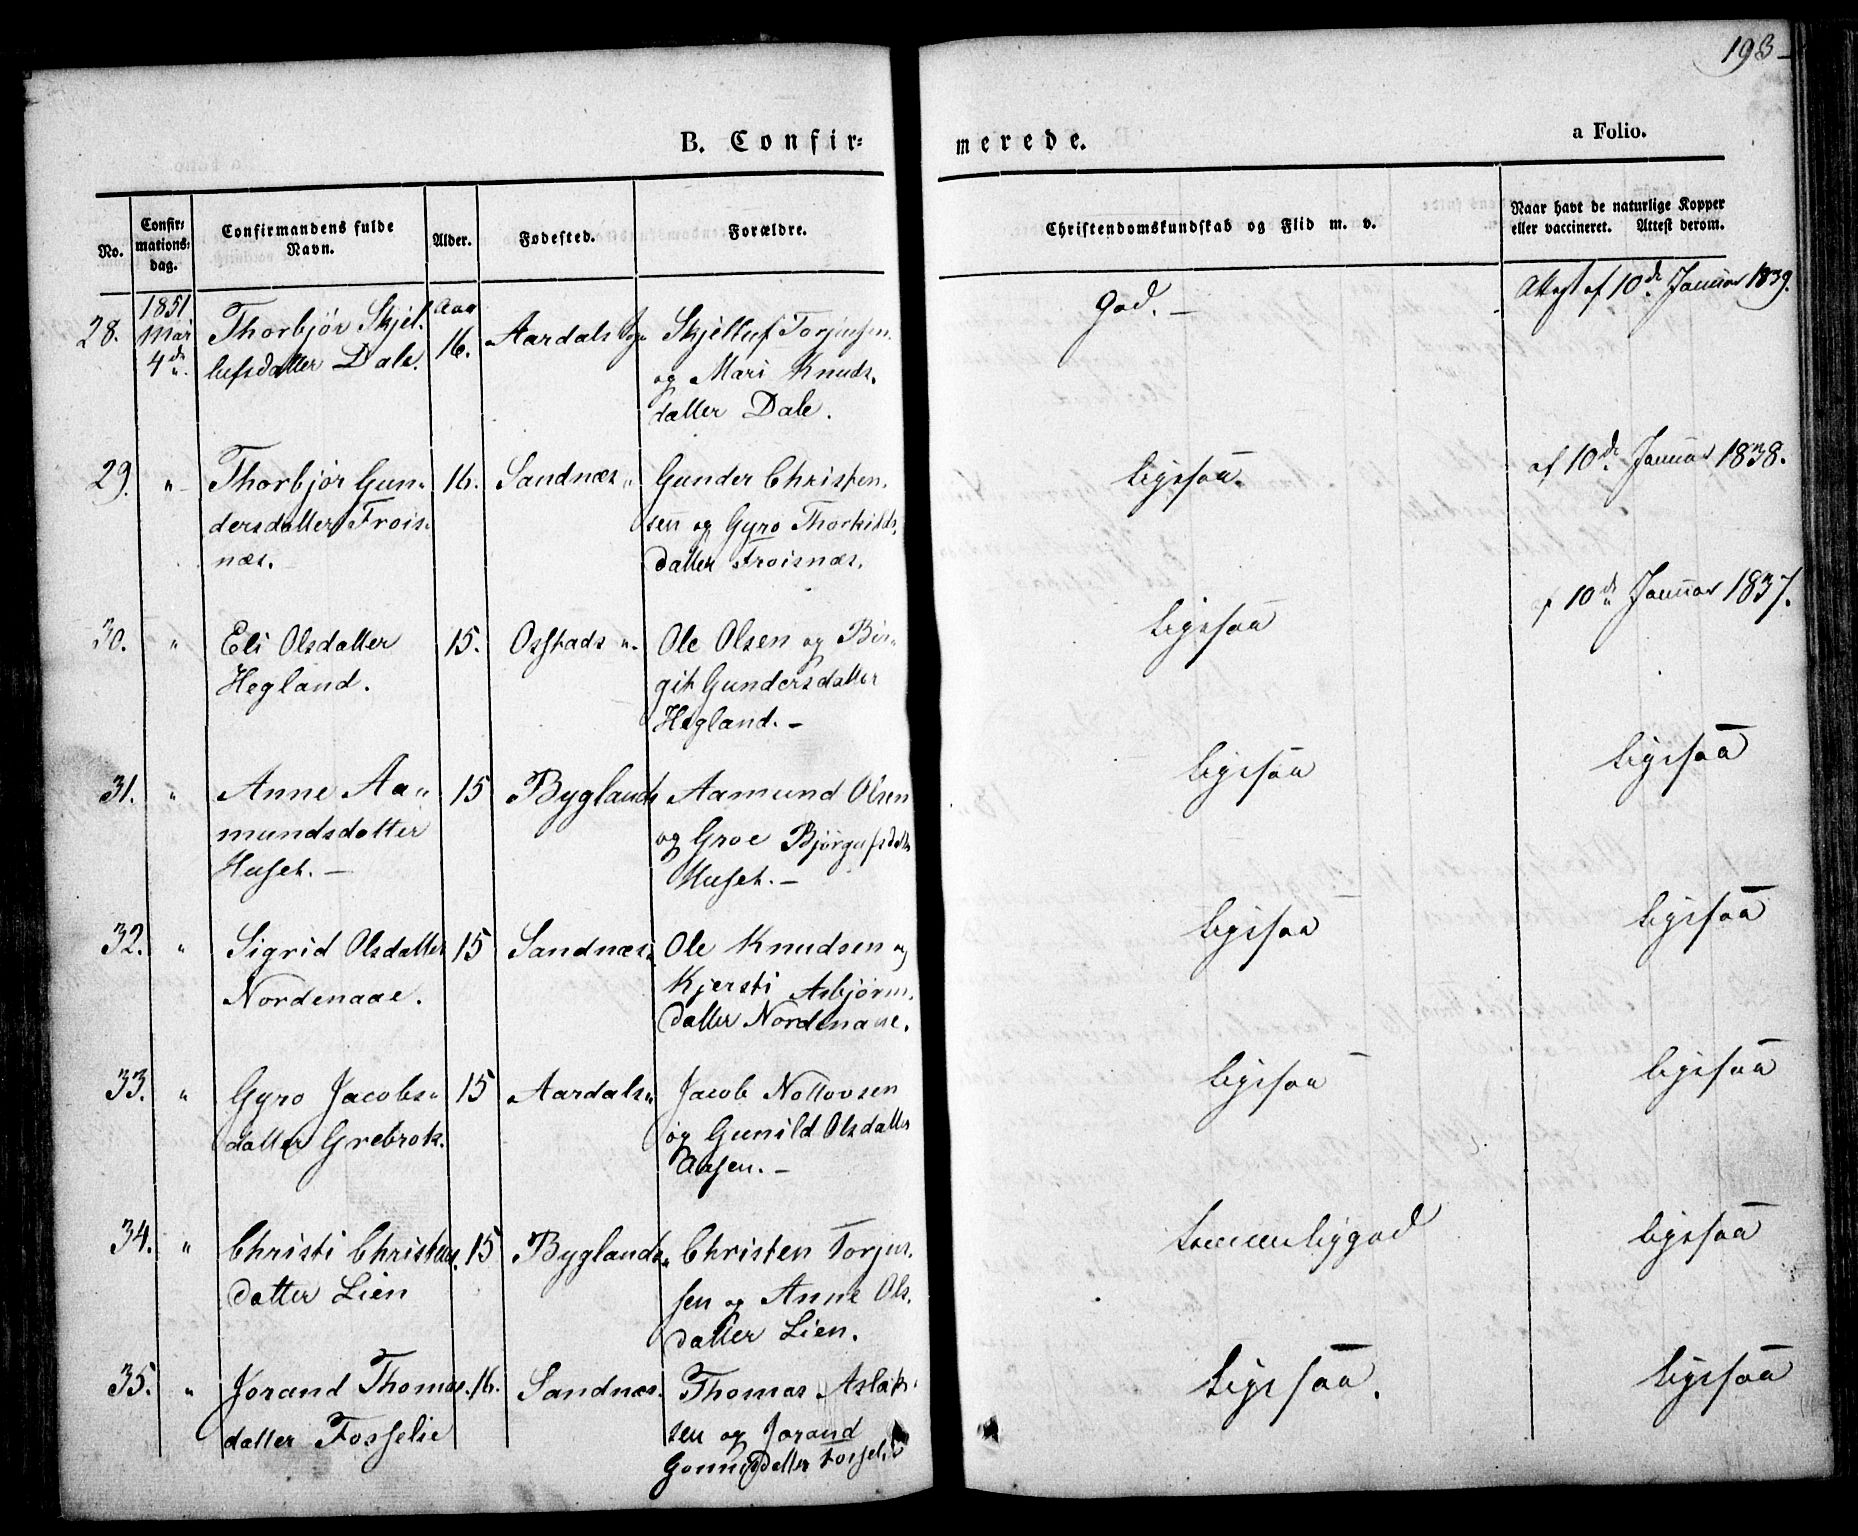 193
B. Confir=
merede.
a Folio.
No.
Confir=
mations=
dag.
Confirmandens fulde
Navn.
Alder.
Fødested.
Forældre.
Christendomskundskab og Flid m. v.
Naar havt de naturlige Kopper
eller vaccineret. Attest derom.
28.
1851
Mai
4de
Thorbjør Skjel
lufsdatter Dale.
Aar
16.
Aardals Sogn
Skjelluf Torjussen
og Mari Knuds
datter Dale.
God. —
Attest af 10de Januar 1839.
29.
"
Thorbjør Gun
dersdatter Frois
næs.
16.
Sandnæs "
Gunder Christen
sen og Gyro Thorkilds
datter Froisnæs.
ligesaa.
af 10de Januar 1838.
30.
"
Eli Olsdatter
Hegland.
15.
Osstads "
Ole Olsen og Bir
git Gundersdatter
Hegland. —
ligesaa
af 10de Januar 1837.
31.
"
Anne Aa
mundsdatter
Huset. —
15
Byglands
Aamund Olsen
og Groe Bjørgufsdatter
Huset. —
ligesaa
ligesaa
32.
"
Sigrid Olsdatter
Nordenaae.
15
Sandnæs
Ole Knudsen og
Kjersti Asbjørns
datter Nordenaae.
ligesaa
ligesaa
33.
"
Gyro Jacobs
datter Grebrok.
15
Aardals "
Jacob Nottovsen
og Gunild Olsdatter
Aasen. —
ligesaa
ligesaa
34.
"
Christi Christens
datter Lien
15
Byglands "
Christen Torjus
sen og Anne Ols
datter Lien.
temmelig god
ligesaa
35.
"
Jorand Thomas
datter Fosselie
16.
Sandnæs
Thomas Aslak
sen og Jorand
datter Fosselie
Ligesaa.
ligesaa